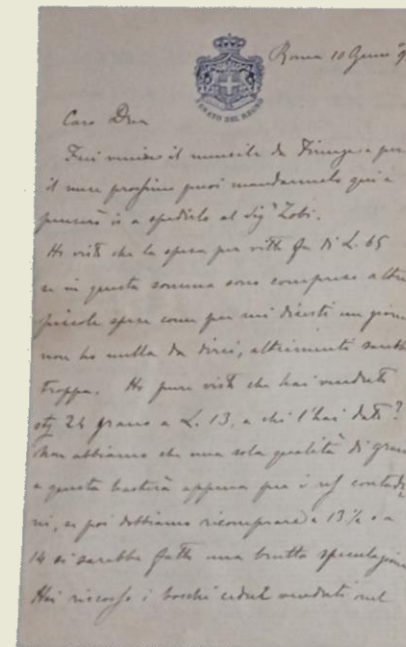 SENATO DEL REGNO
Roma 10 Genn
Caro
il mensile da Firenze e per
il mese prossimo puoi mandarmelo qui e
penserò io a spedirlo al Sig Zobi.
Ho visto che la spesa per vitto fu di L. 65
se in questa somma sono comprese altre
piccole spese come par mi dicesti un giorno
non ho nulla da dirci, altrimenti sarebbe
troppa. Ho pure visto che hai venduto
24 grano a L. 13, a chi l'hai dato?
Non abbiamo che una sola qualità di grano
e questa basterà appena per i contadi
ni, se poi dobbiamo ricomprare a 13½ o a
14 si sarebbe fatta una brutta speculazione
Hai riscosso i boschi cedui venduti nel